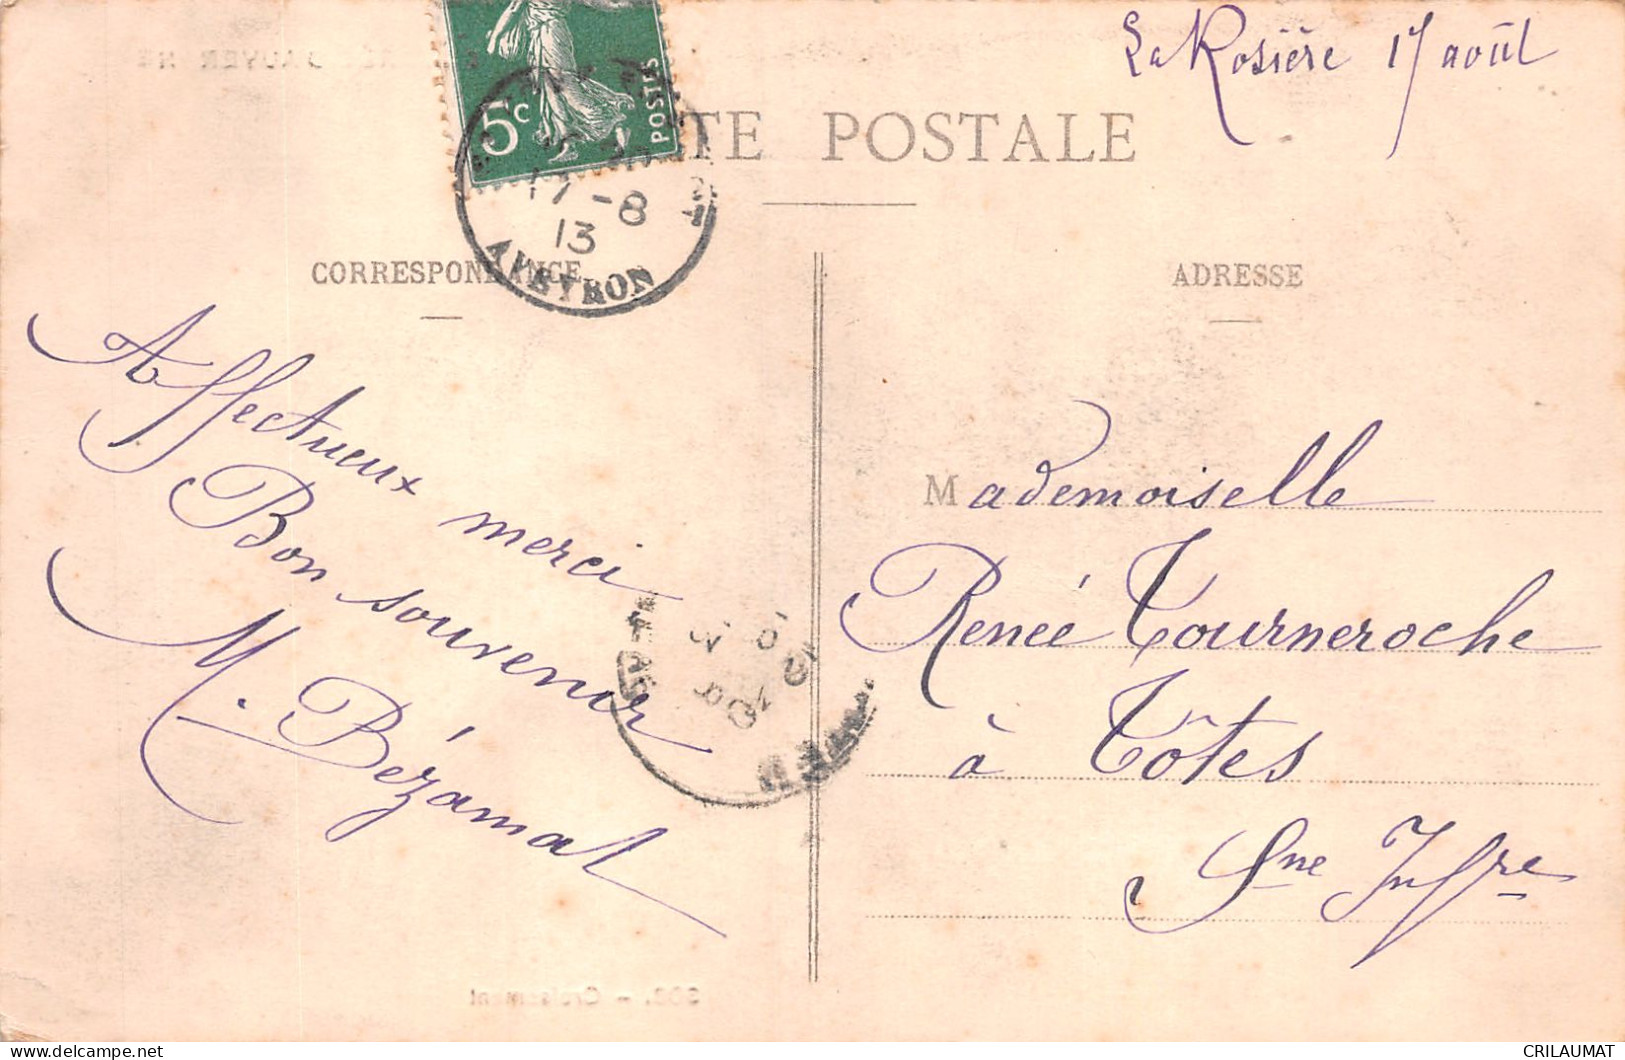 La Rosière 17 août
5c
POSTES
TE POSTALE
17-8
13
AVEYRON
CORRESPONDANCE
ADRESSE
Affectueux merci
Bon souvenir
M. Bézamat
Mademoiselle
Renée Tourneroche
à Tôtes
Sne Infre
Croisement
CRILAUMAT